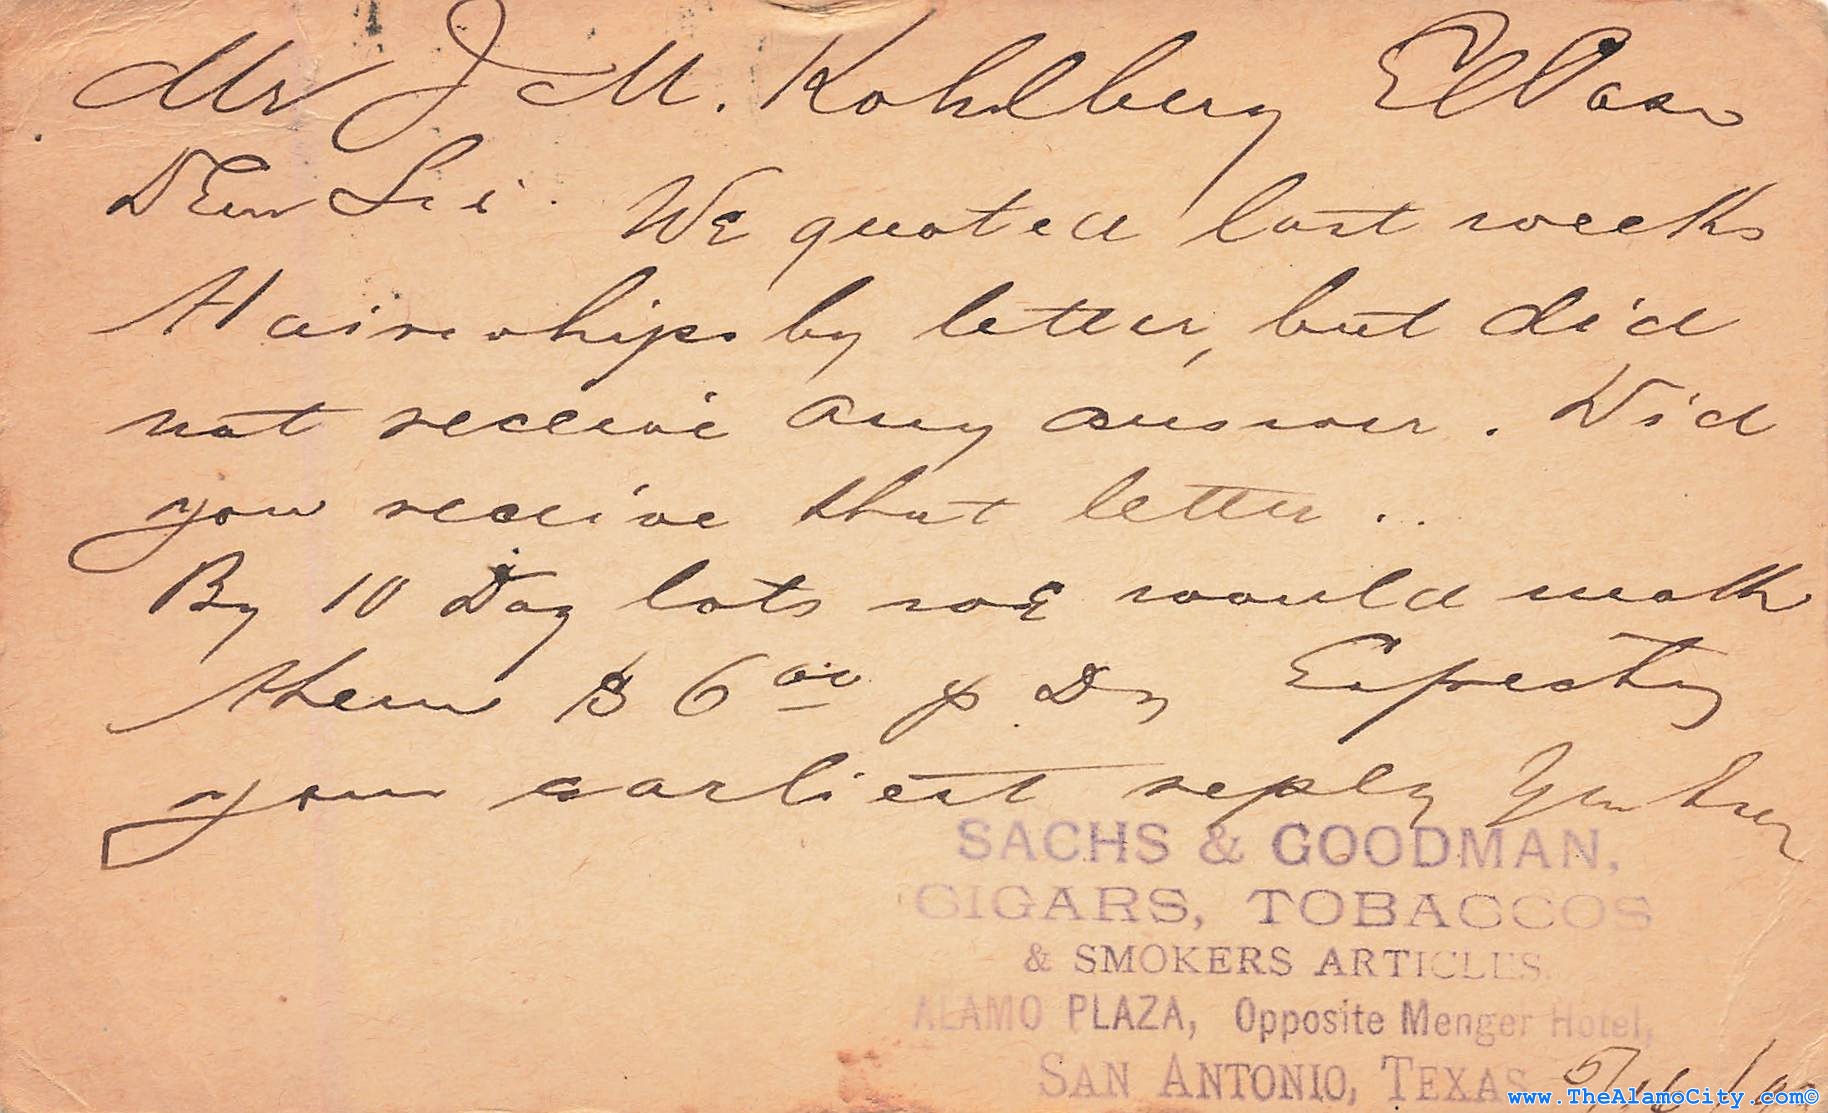 Mr J M. Kohlberg El Paso
Dear Sir. We quoted last week
by letter, but did
not receive any answer. Did
you receive that letter..
By 10 Doz lots we would
them $ 6 00 p Dz
your earliest reply
SACHS & GOODMAN,
CIGARS, TOBACCOS
& SMOKERS ARTICLES.
ALAMO PLAZA, Opposite Menger Hotel,
SAN ANTONIO, TEXAS
www.TheAlamoCity.com©